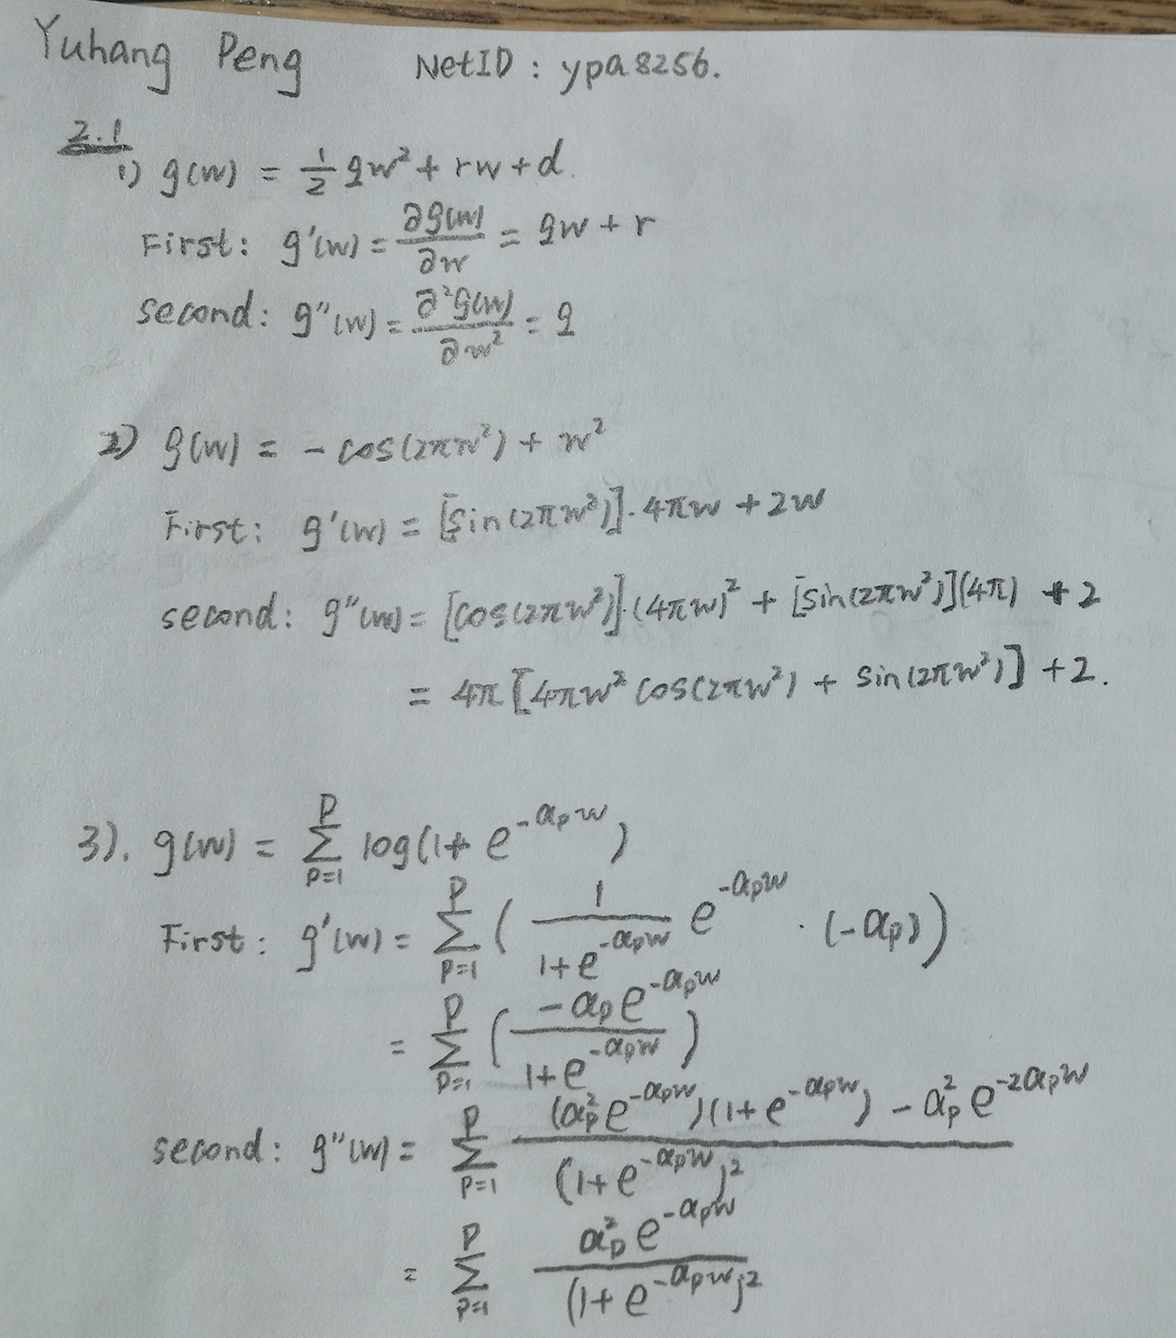 Yuhang Peng NetID : ypa8256.
2.1
1) g(w) = 1/2 qw² + rw + d.
First: g'(w) = ∂g(w)/∂w = qw + r
second: g''(w) = ∂²g(w)/∂w² = q
2) g(w) = - cos(2πw²) + w²
First: g'(w) = [sin(2πw²)]·4πw + 2w
second: g''(w) = [cos(2πw²)]·(4πw)² + [sin(2πw²)](4π) + 2
= 4π[4πw² cos(2πw²) + sin(2πw²)] + 2.
3). g(w) = Σ_{p=1}^{P} log(1 + e^{-α_p w})
First: g'(w) = Σ_{p=1}^{P} ( 1/(1+e^{-α_p w}) e^{-α_p w} · (-α_p) )
= Σ_{p=1}^{P} ( -α_p e^{-α_p w} / (1+e^{-α_p w}) )
second: g''(w) = Σ_{p=1}^{P} ((α_p² e^{-α_p w})(1+e^{-α_p w}) - α_p² e^{-2α_p w}) / (1+e^{-α_p w})²
= Σ_{p=1}^{P} α_p² e^{-α_p w} / (1+e^{-α_p w})²